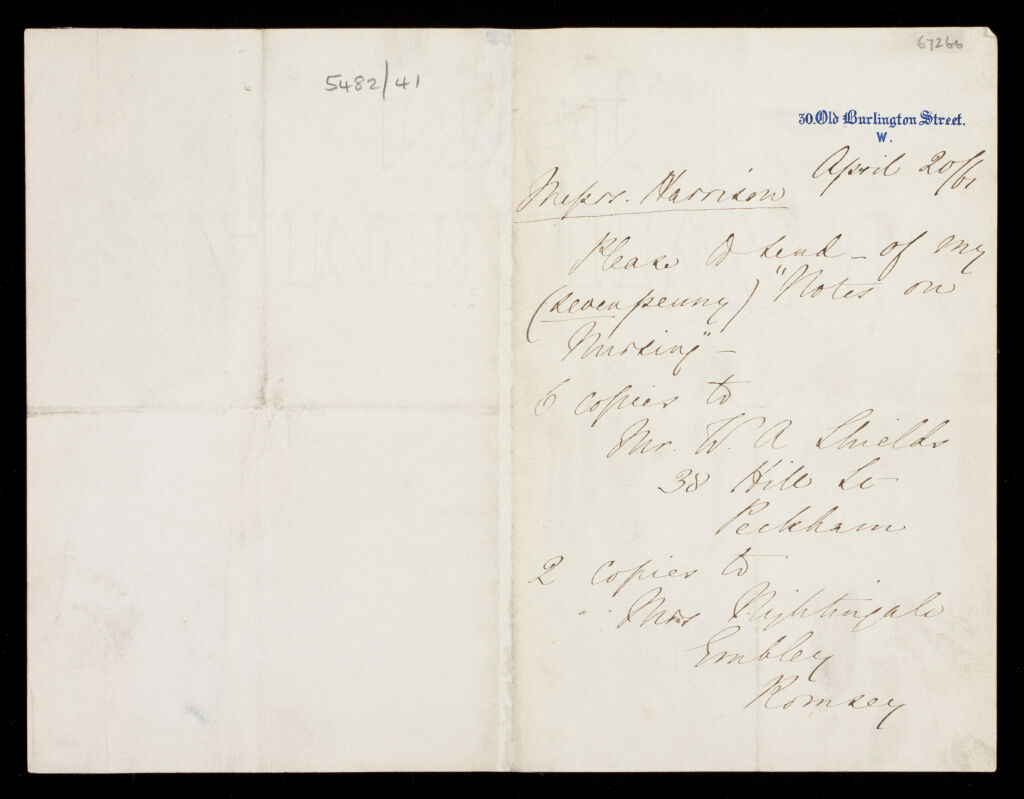 5482/41
67266
30. Old Burlington Street.
W.
April 20/61
Messrs. Harrison
Please to send – of my
(sevenpenny) "Notes on
Nursing" –
6 copies to
Mr. W. A. Shields
38 Hill St
Peckham
2 copies to
Mrs Nightingale
Embley
Romsey